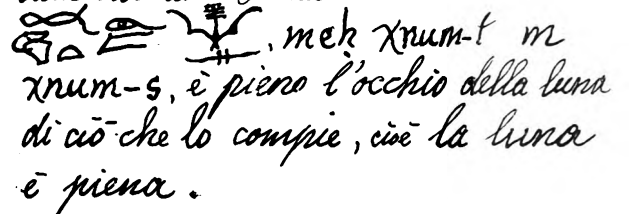 , meh χnum-t m
χnum-s, è pieno l'occhio della luna
di ciò che lo compie, cioè la luna
è piena.